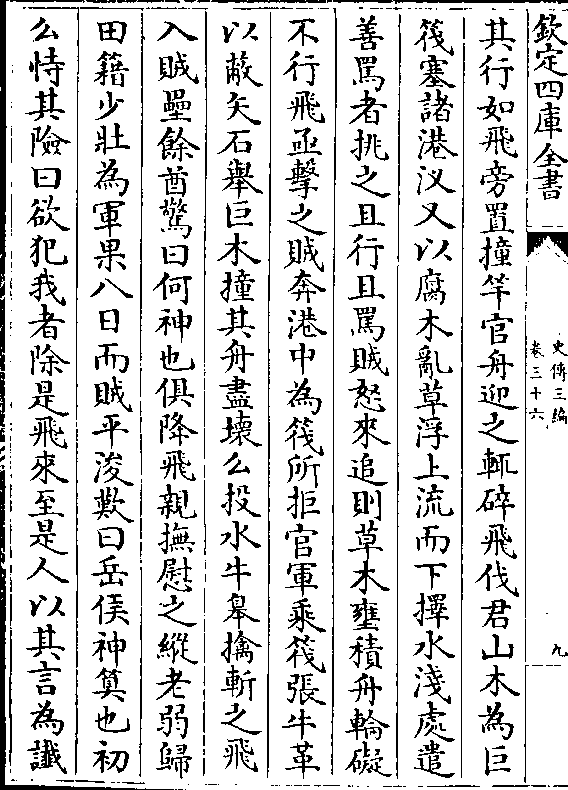 欽定四庫全書
史傳三編
卷三十六
九
其行如飛旁置撞竿官舟迎之輒碎飛伐君山木為巨
筏塞諸港汊又以腐木亂草浮上流而下擇水淺處遣
善罵者挑之且行且罵賊怒來追則草木壅積舟輪礙
不行飛亟擊之賊奔港中為筏所拒官軍乘筏張牛革
以蔽矢石舉巨木撞其舟盡壞么投水牛皋擒斬之飛
入賊壘餘酋驚曰何神也俱降飛親撫慰之縱老弱歸
田籍少壯為軍果八日而賊平浚歎曰岳侯神算也初
么恃其險曰欲犯我者除是飛來至是人以其言為讖